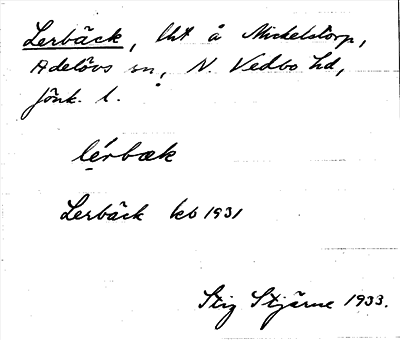 Lerbäck, lht å Mickelstorp,
Adelövs sn, N. Vedbo hd,
Jönk. l.
lẹ́rbæk
Lerbäck kb 1931
Stig Stjärne 1933.